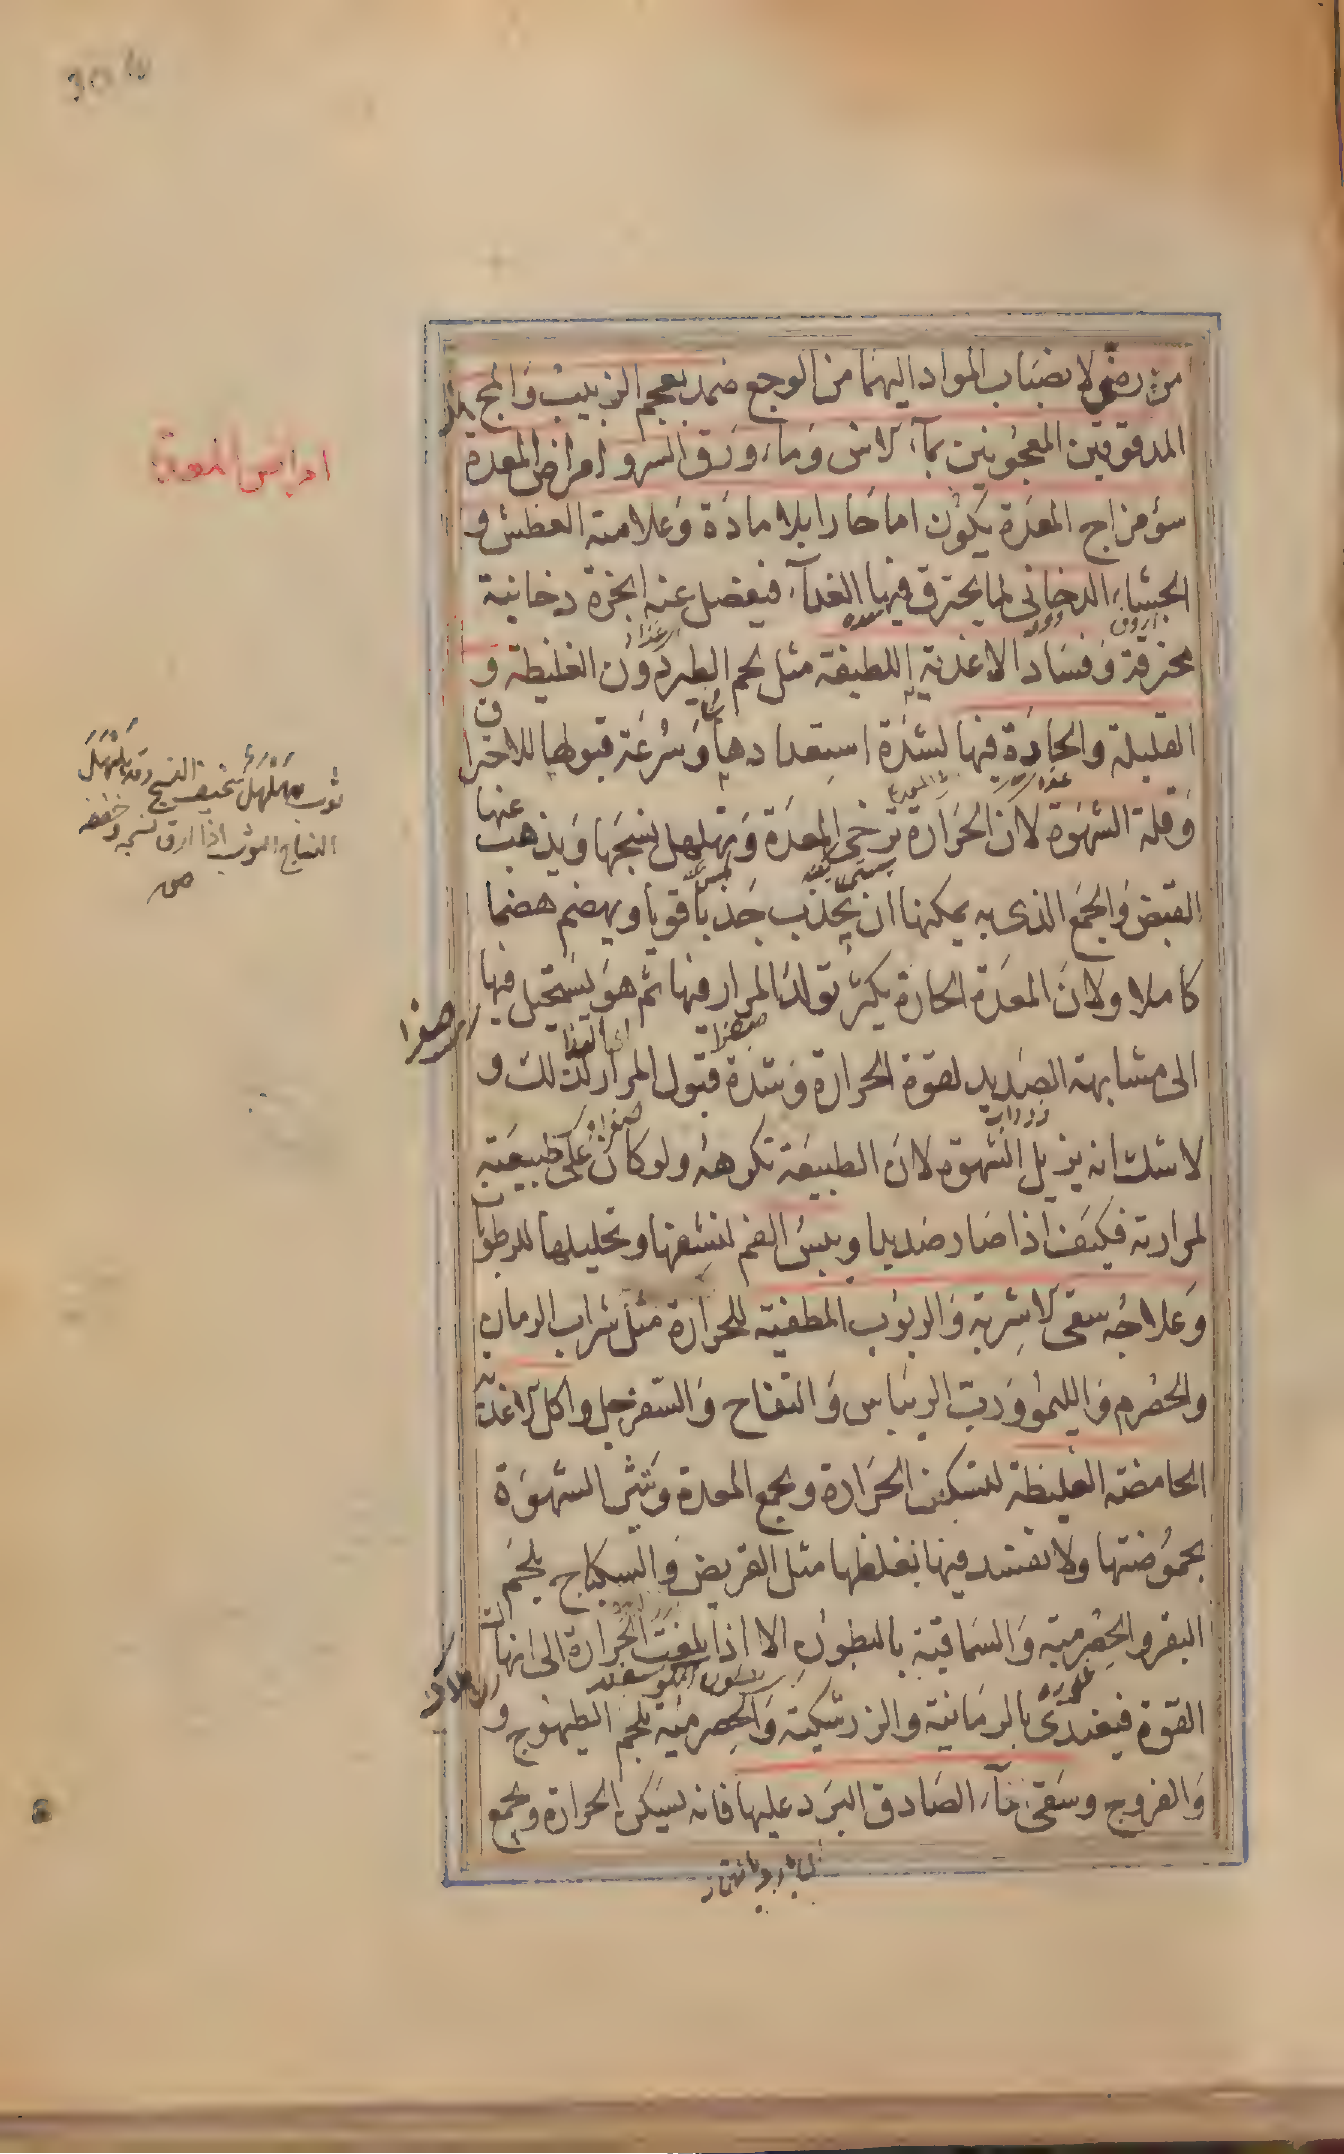 لانصباب المواد اليهما من الوجع ضمد بعجم الزبيب
المدقوقين المعجونين بماء الاس وماء ورق السرو امراض المعدة
سؤ مزاج المعدة يكون اما حارا بلا مادة وعلامته العطش و
الجشاء الدخانى لما يحترق فيها الغداء فيفصل عنه ابخرة دخانية
محترقة وفساد الاغذية اللطيفة مثل لحم الطير دون الغليظة و
القليلة والحادة فيها لشدة استعدادها وسرعة قبولها للاحترا
ق
وقلة الشهوة لان الحرارة ترخى المعدة وتهلهل نسجها ويذهب عنها
القبض والجمع الذى به يمكنها ان يجذب جذبا قويا ويهضم هضما
كاملا ولان المعدة الحارة يكثر تولد المرار فيها ثم هو يستحيل فيها
الى مشابهة الصديد لقوة الحرارة وشدة قبول المرار لذلك و
لا شك انه يزيل الشهوة لان الطبيعة تكرهه ولو كان على طبيعته
لمرارته فكيف اذا صار صديدا ويبس الفم لنشفها وتحليلها للرطوبات
وعلاجه سقى الاشربة والربوب المطفية للحرارة مثل شراب الرمان
والحصرم والليمو ورب الريباس والتفاح والسفرجل واكل الاغذية
الحامضة الغليظة لتسكين الحرارة وتجمع المعدة وتثير الشهوة
بحموضتها ولا تفسد فيها بغلظها مثل القريض والسكباج بلحم
البقر والحصرمية والسماقية بالبطون الا اذا بلغت الحرارة الى انهاك
القوة فيغتذى بالرمانية والزرشكية والحصرمية بلحم الطيهوج و
والفروج وسقى ماء الصادق البرد عليها فانه يسكن الحرارة ويجمع
امراض المعدة
ثوب مهلهل سخيف النسج وقد يهلهل
النساج الثوب اذا ارق نسجه وخففه
ص
صفرا